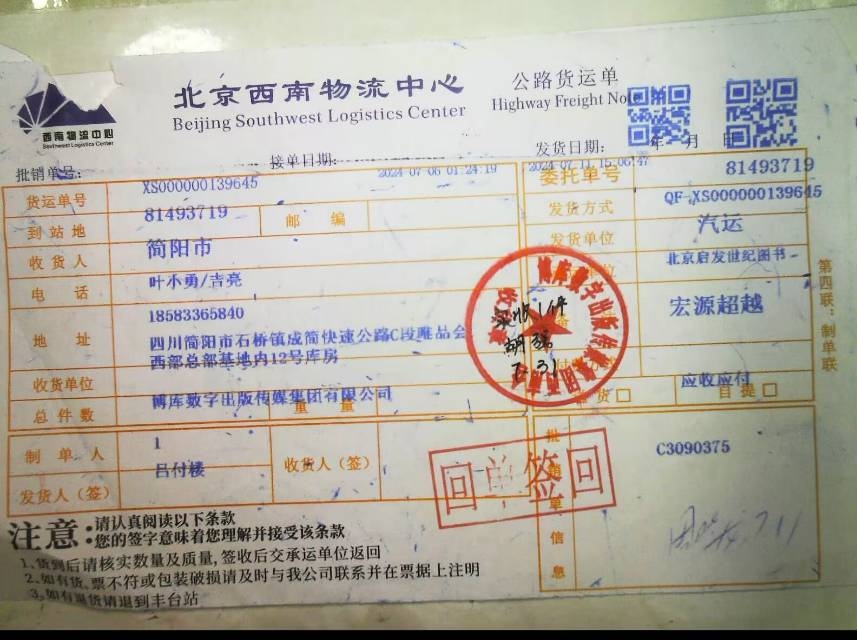 北京西南物流中心
Beijing Southwest Logistics Center
公路货运单
Highway Freight Note
西南物流中心
Southwest Logistics Center
批销单号: XS000000139645
接单日期: 2024 07 06 01:24:19
发货日期: 年 月 日
2024 07 11 15:06:47
货运单号 81493719
邮 编
委托单号 81493719
QF-XS000000139645
到站地 简阳市
发货方式 汽运
收货人 叶小勇/吉亮
发货单位 北京启发世纪图书
电 话 18583365840
宏源超越
地 址 四川简阳市石桥镇成简快速公路C段唯品会
西部总部基地内12号库房
收货单位 博库数字出版传媒集团有限公司
应收应付
总件数 1
重 量
货□ 自提□
制单人 吕付楼
收货人(签)
发货人(签)
批销单信息
C3090375
第四联:制单联
博库数字出版传媒集团
实收1件
7.31
回单签回
711
注意:请认真阅读以下条款
您的签字意味着您理解并接受该条款
1、货到后请核实数量及质量,签收后交承运单位返回
2、如有货、票不符或包装破损请及时与我公司联系并在票据上注明
3、如有退货请退到丰台站